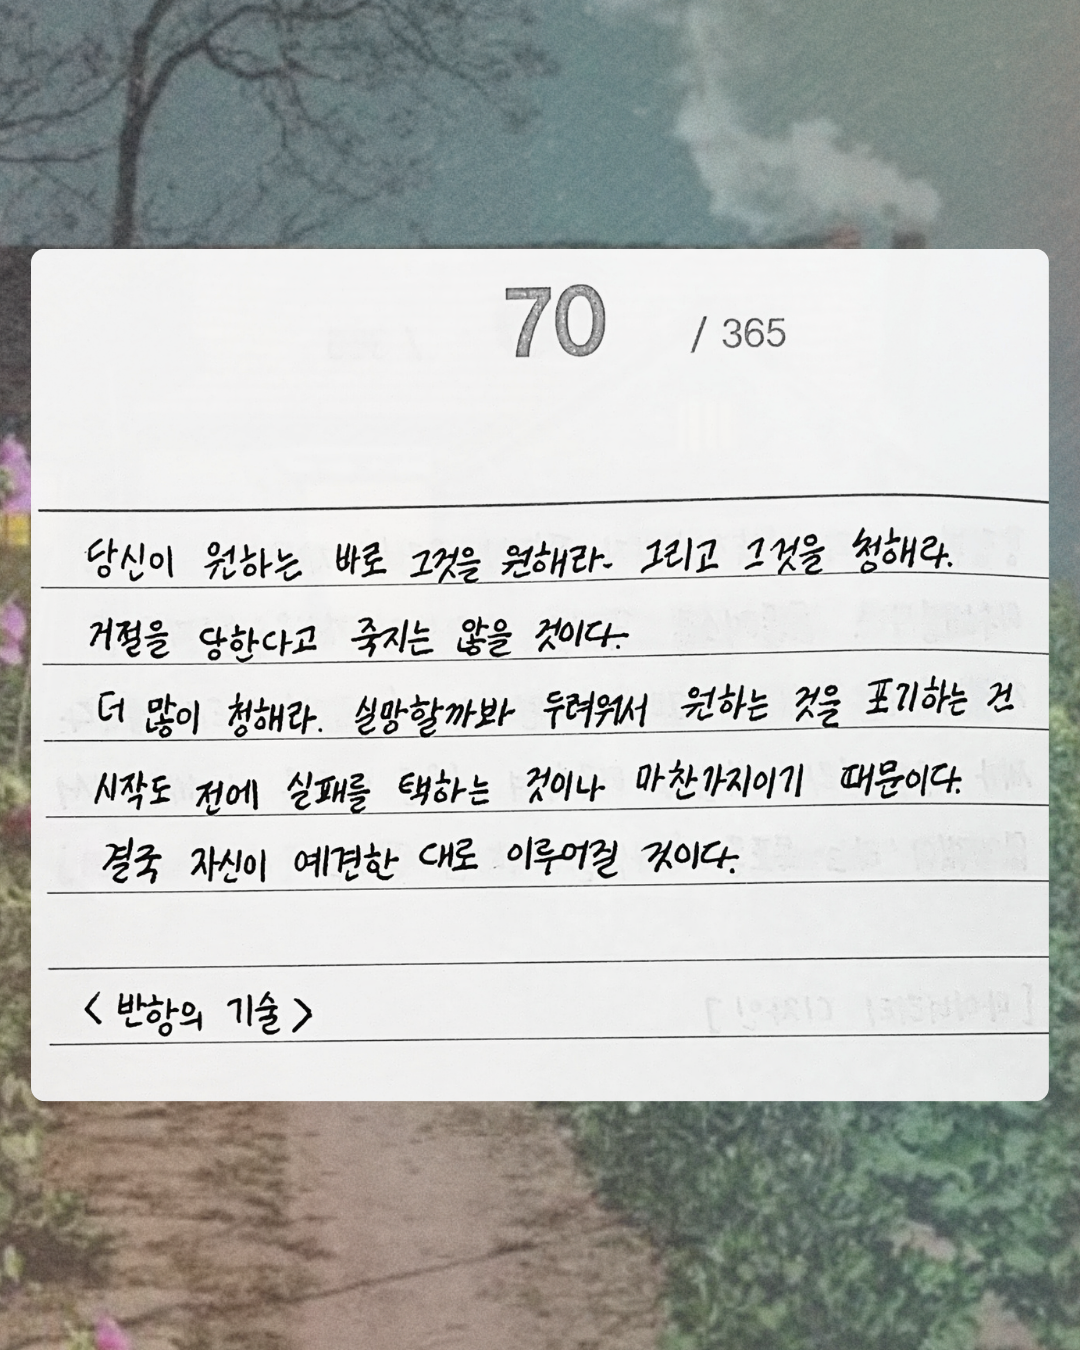 70 / 365
당신이 원하는 바로 그것을 원해라. 그리고 그것을 청해라.
거절을 당한다고 죽지는 않을 것이다.
더 많이 청해라. 실망할까봐 두려워서 원하는 것을 포기하는 건
시작도 전에 실패를 택하는 것이나 마찬가지이기 때문이다.
결국 자신이 예견한 대로 이루어질 것이다.
<반항의 기술>